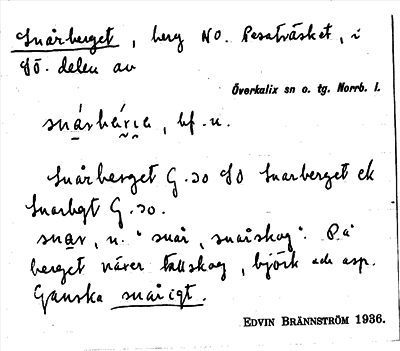 Snårberget, berg NO. Pesaträsket, i
SO. delen av
Överkalix sn o. tg. Norrb. l.
bf. n.
Snårberget G. 30 SO Snarberget ek
Snarbgt G. 30.
snar, n. "snår, snårskog". På
berget växer tallskog, björk och asp.
Ganska snårigt.
EDVIN BRÄNNSTRÖM 1936.